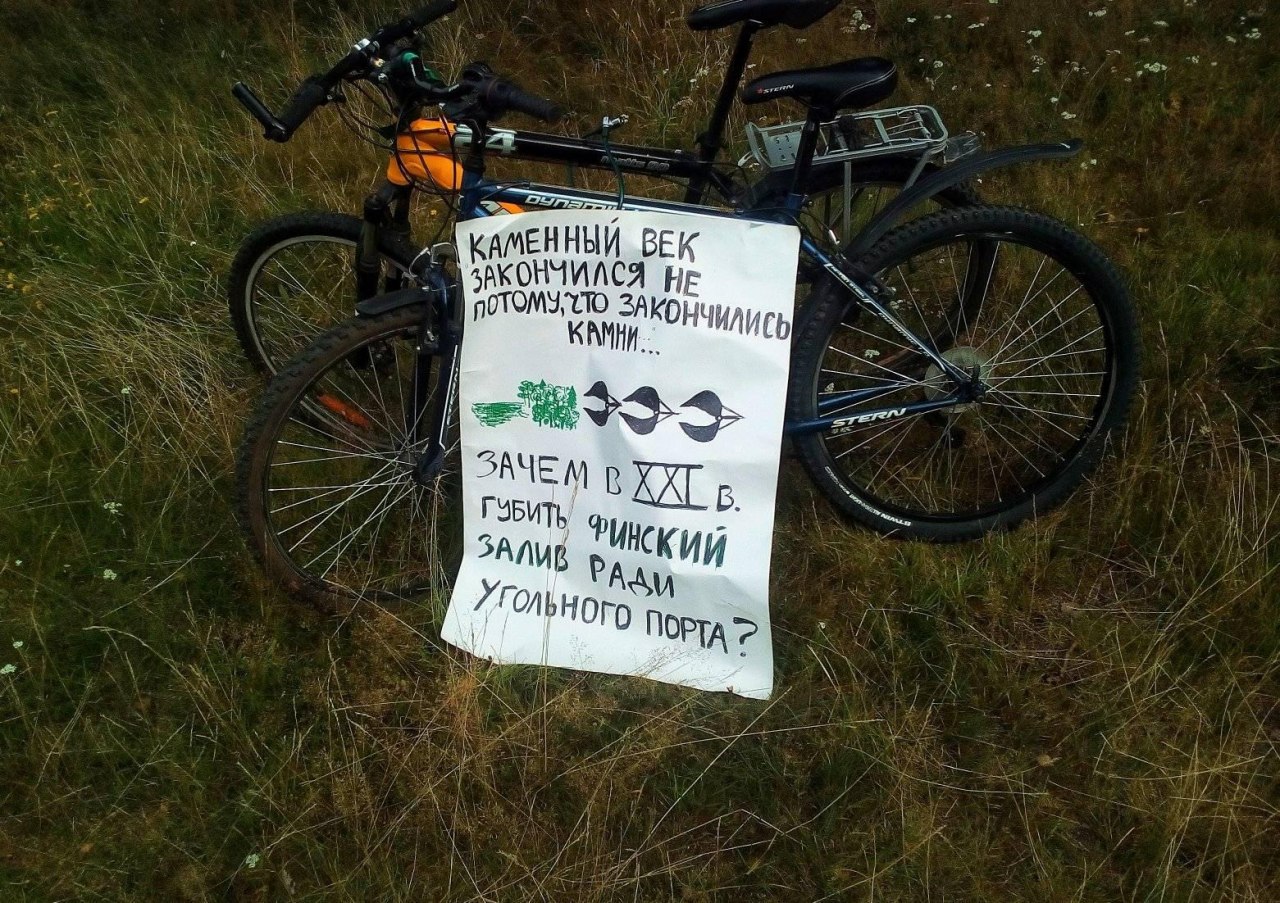 STERN
24
DYNAMIC
КАМЕННЫЙ ВЕК
ЗАКОНЧИЛСЯ НЕ
ПОТОМУ, ЧТО ЗАКОНЧИЛИСЬ
КАМНИ...
ЗАЧЕМ В XXI В.
ГУБИТЬ ФИНСКИЙ
ЗАЛИВ РАДИ
УГОЛЬНОГО ПОРТА?
STERN